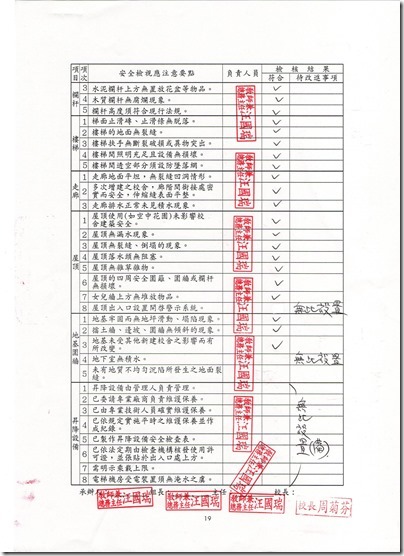 項目 項次 安全檢視應注意要點 負責人員 檢核結果
符合 待改進事項
欄杆
3 水泥欄杆上方無置放花盆等物品。 ✓
4 木質欄杆無腐爛現象。 ✓
5 欄杆高度須符合現行法規。 ✓
樓梯
1 梯面止滑磚、止滑條無脫落。 ✓
2 樓梯的地面無裂縫。 ✓
3 樓梯扶手無斷裂破損或異物突出。 ✓
4 樓梯間照明充足且設備無損壞。 ✓
5 樓梯間透空部分須設防墜落網。 ✓
走廊
1 走廊地面平坦，無裂縫凹凋情形。 ✓
2 多次增建之校舍，廊階間銜接處密實而安全，伸縮縫表面平整。 ✓
3 走廊排水正常未見積水現象。 ✓
屋頂
1 屋頂使用(如空中花園)未影響校舍建築安全。 ✓
2 屋頂無漏水現象。 ✓
3 屋頂無裂縫、倒塌的現象。 ✓
4 屋頂落水頭無阻塞。 ✓
5 屋頂無雜草雜物。 ✓
6 屋頂的四周安全圍籬、圍牆或欄杆無損壞。 ✓
7 女兒牆上方無堆放物品。 ✓
8 屋頂出入口設置開啓警示系統。 無此設置
地基圍牆
1 地基牢固而無地坪滑動、塌陷現象。 ✓
2 擋土牆、邊坡、圍牆無傾斜的現象。 ✓
3 地基未受其他新建校舍之影響而有所改變。 ✓
4 地下室無積水。 無此設置
5 未有地質不均勻沉陷所發生之地面裂縫。
昇降設備
1 昇降設備由管理人員負責管理。
2 已委請專業廠商負責維護保養。
3 已由專業技術人員確實維護保養。
4 已依規定實施平時之維護保養並作成紀錄。
5 已製作昇降設備安全檢查表。
6 已依法定期由檢查機構核發使用許可證，並張貼於出入口處上方。
7 需明示乘載上限。
8 電梯機房受電裝置須無淹水之虞。
無此設置(備)
教師兼總務主任 汪國瑞
承辦 組長： 主任 校長：
教師兼總務主任 汪國瑞 教師兼總務主任 汪國瑞 教師兼總務主任 汪國瑞 校長 周菊芬
19